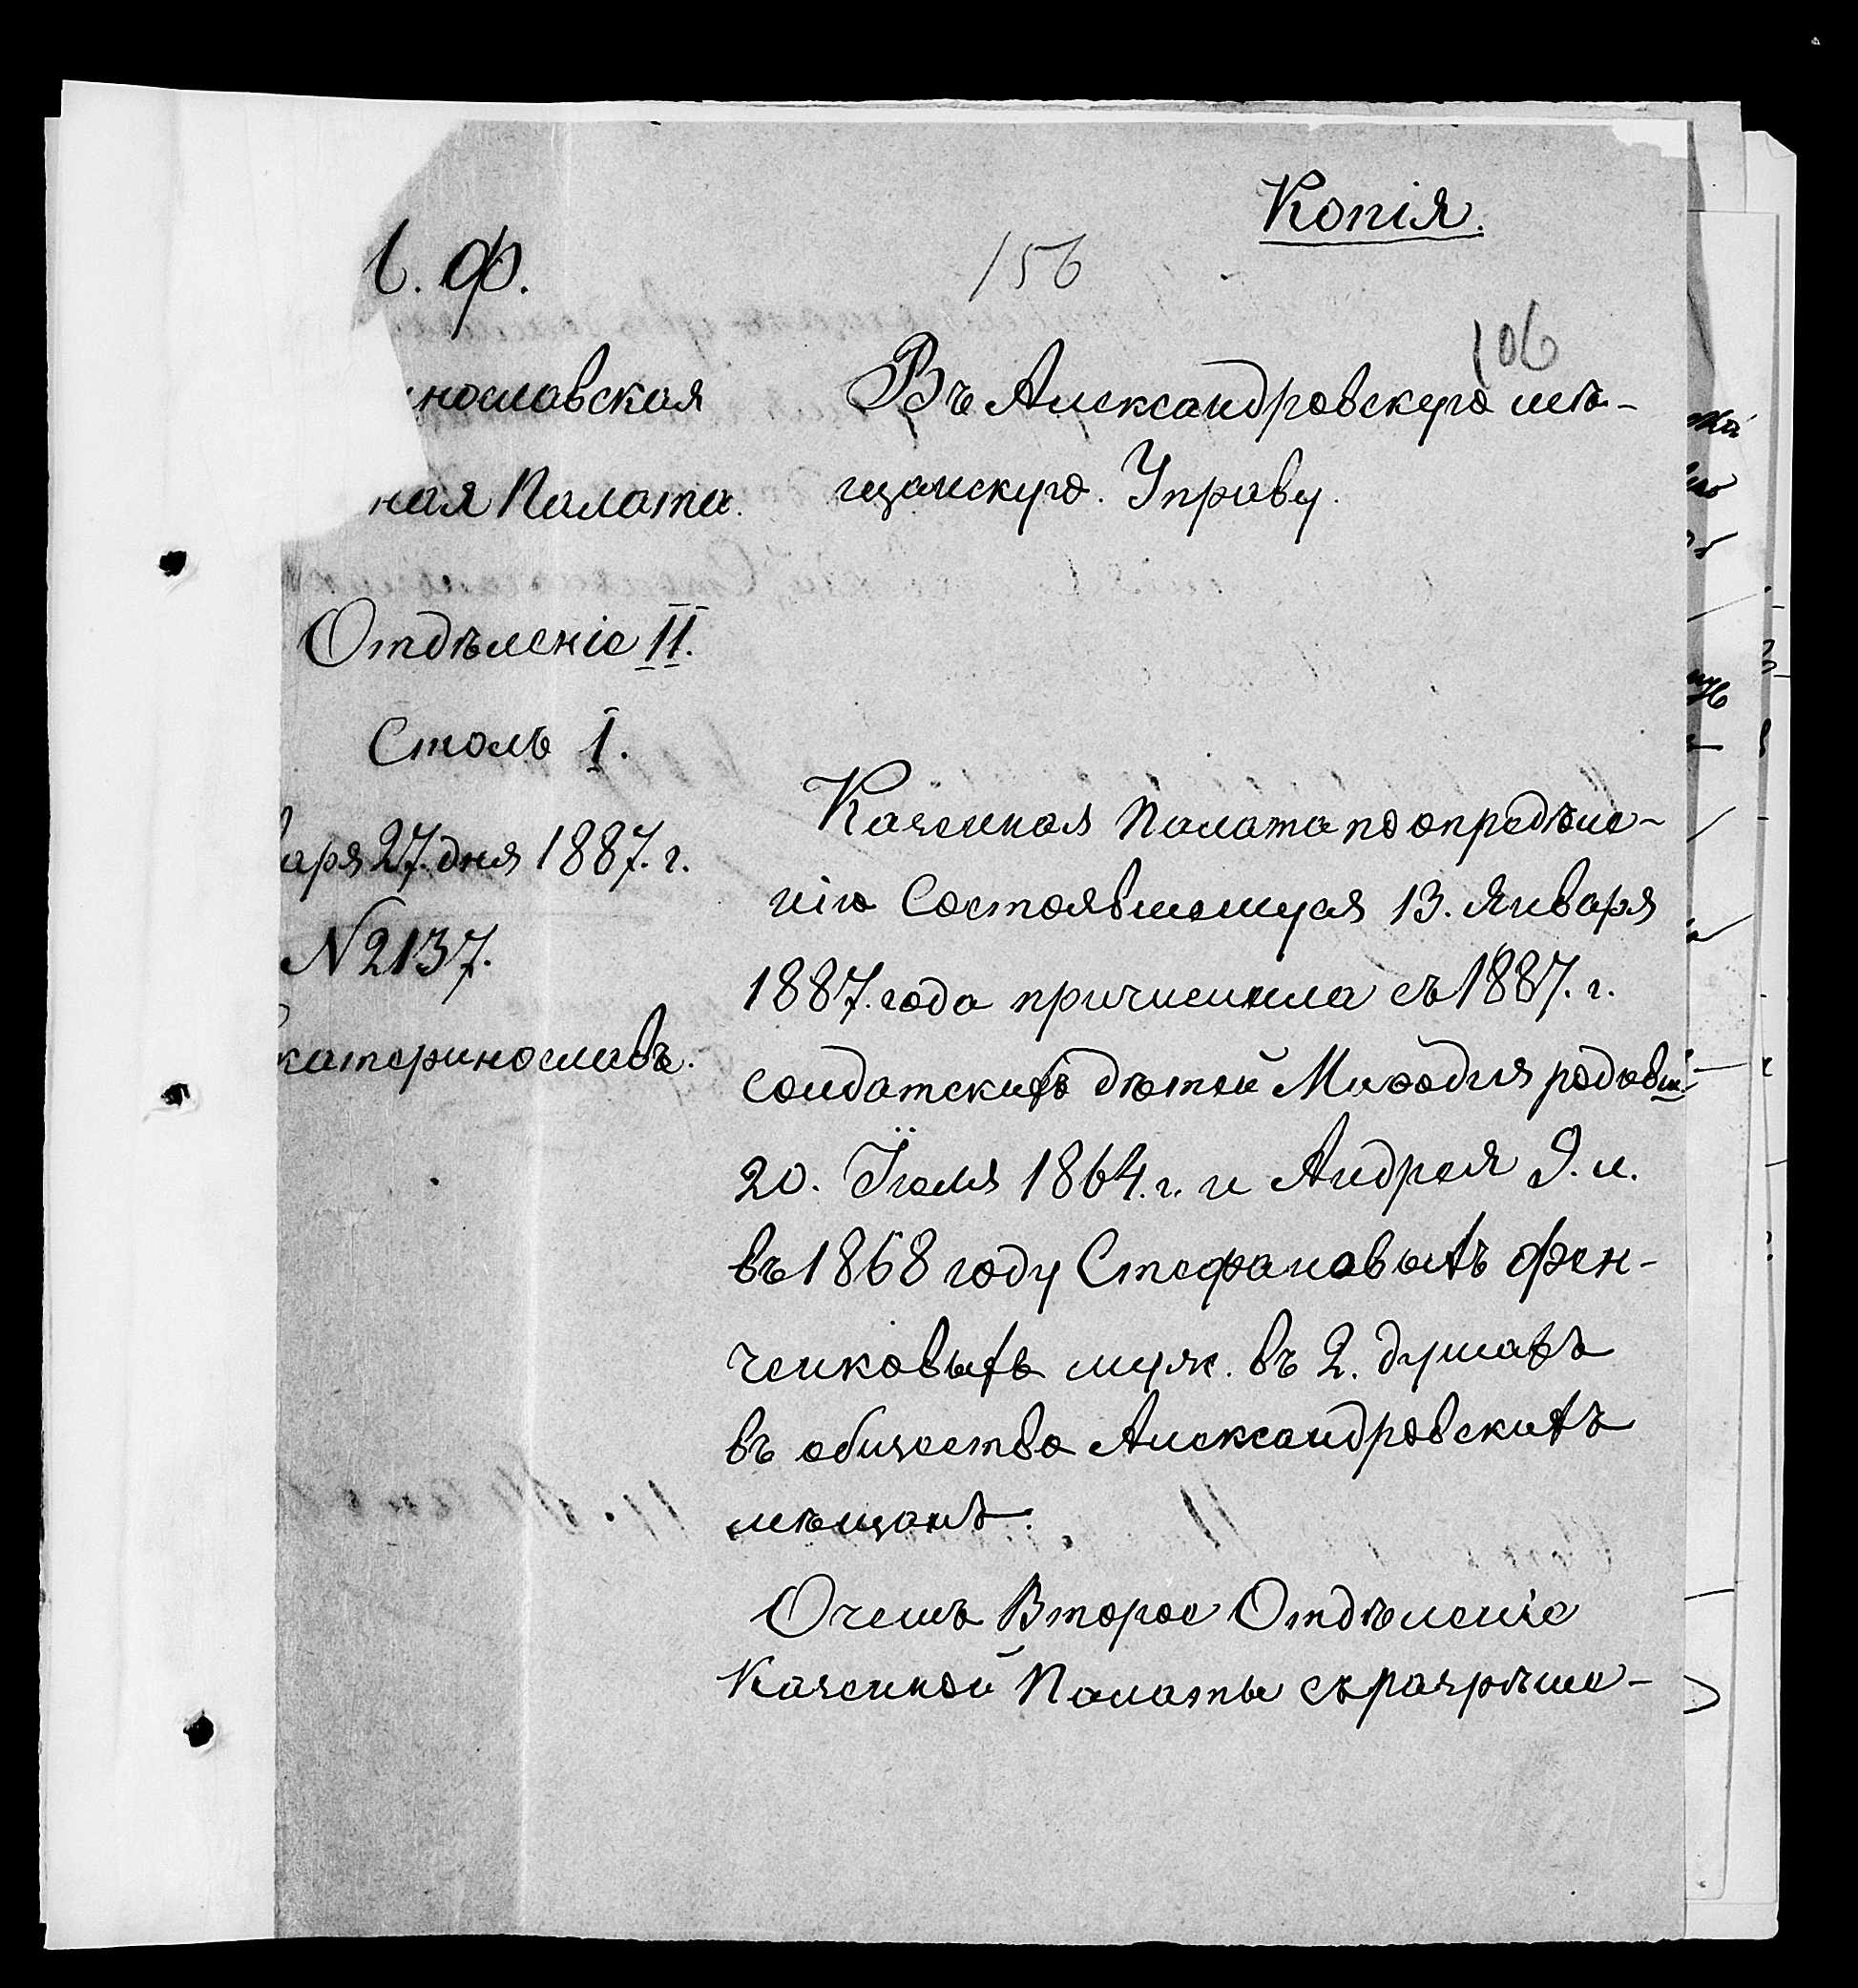 Копія.
156
. Ф.
106
нославская
ная Палата.
Отдѣленіе II.
Столъ I.
аря 27. дня 1887. г.
N 2137.
катеринославъ.
Въ Александровскую мѣ-
щанскую. Управу.
Казенная Палата по опредѣле-
нію Состоявшемуся 13. Января
1887. года причислила съ 1887. г.
солдатскихъ дѣтей Мифодія родивш.
20. Іюля 1864. г. и Андрея
въ 1868 году Стефановыхъ Фен-
ченковыхъ муж. въ 2. душахъ
въ общество Александровскихъ
мѣщанъ.
О чемъ Второе Отдѣленіе
Казенной Палаты съ разрѣше-